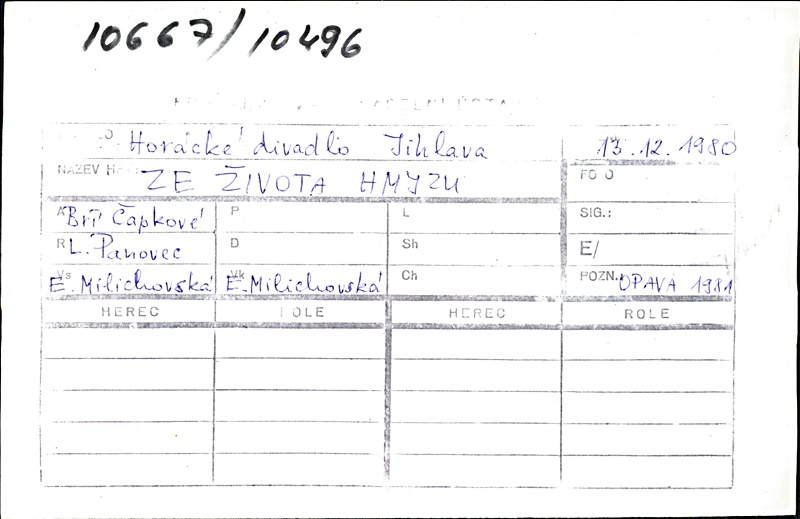 10667/10496
Horácké divadlo Jihlava 13.12.1980
NÁZEV ZE ŽIVOTA HMYZU FOTO
A Bří Čapkové P L SIG.:
R L. Panovec D Sh E/
Vs E. Milichovská Vk E. Milichovská Ch POZN.: OPAVA 1981
HEREC ROLE HEREC ROLE